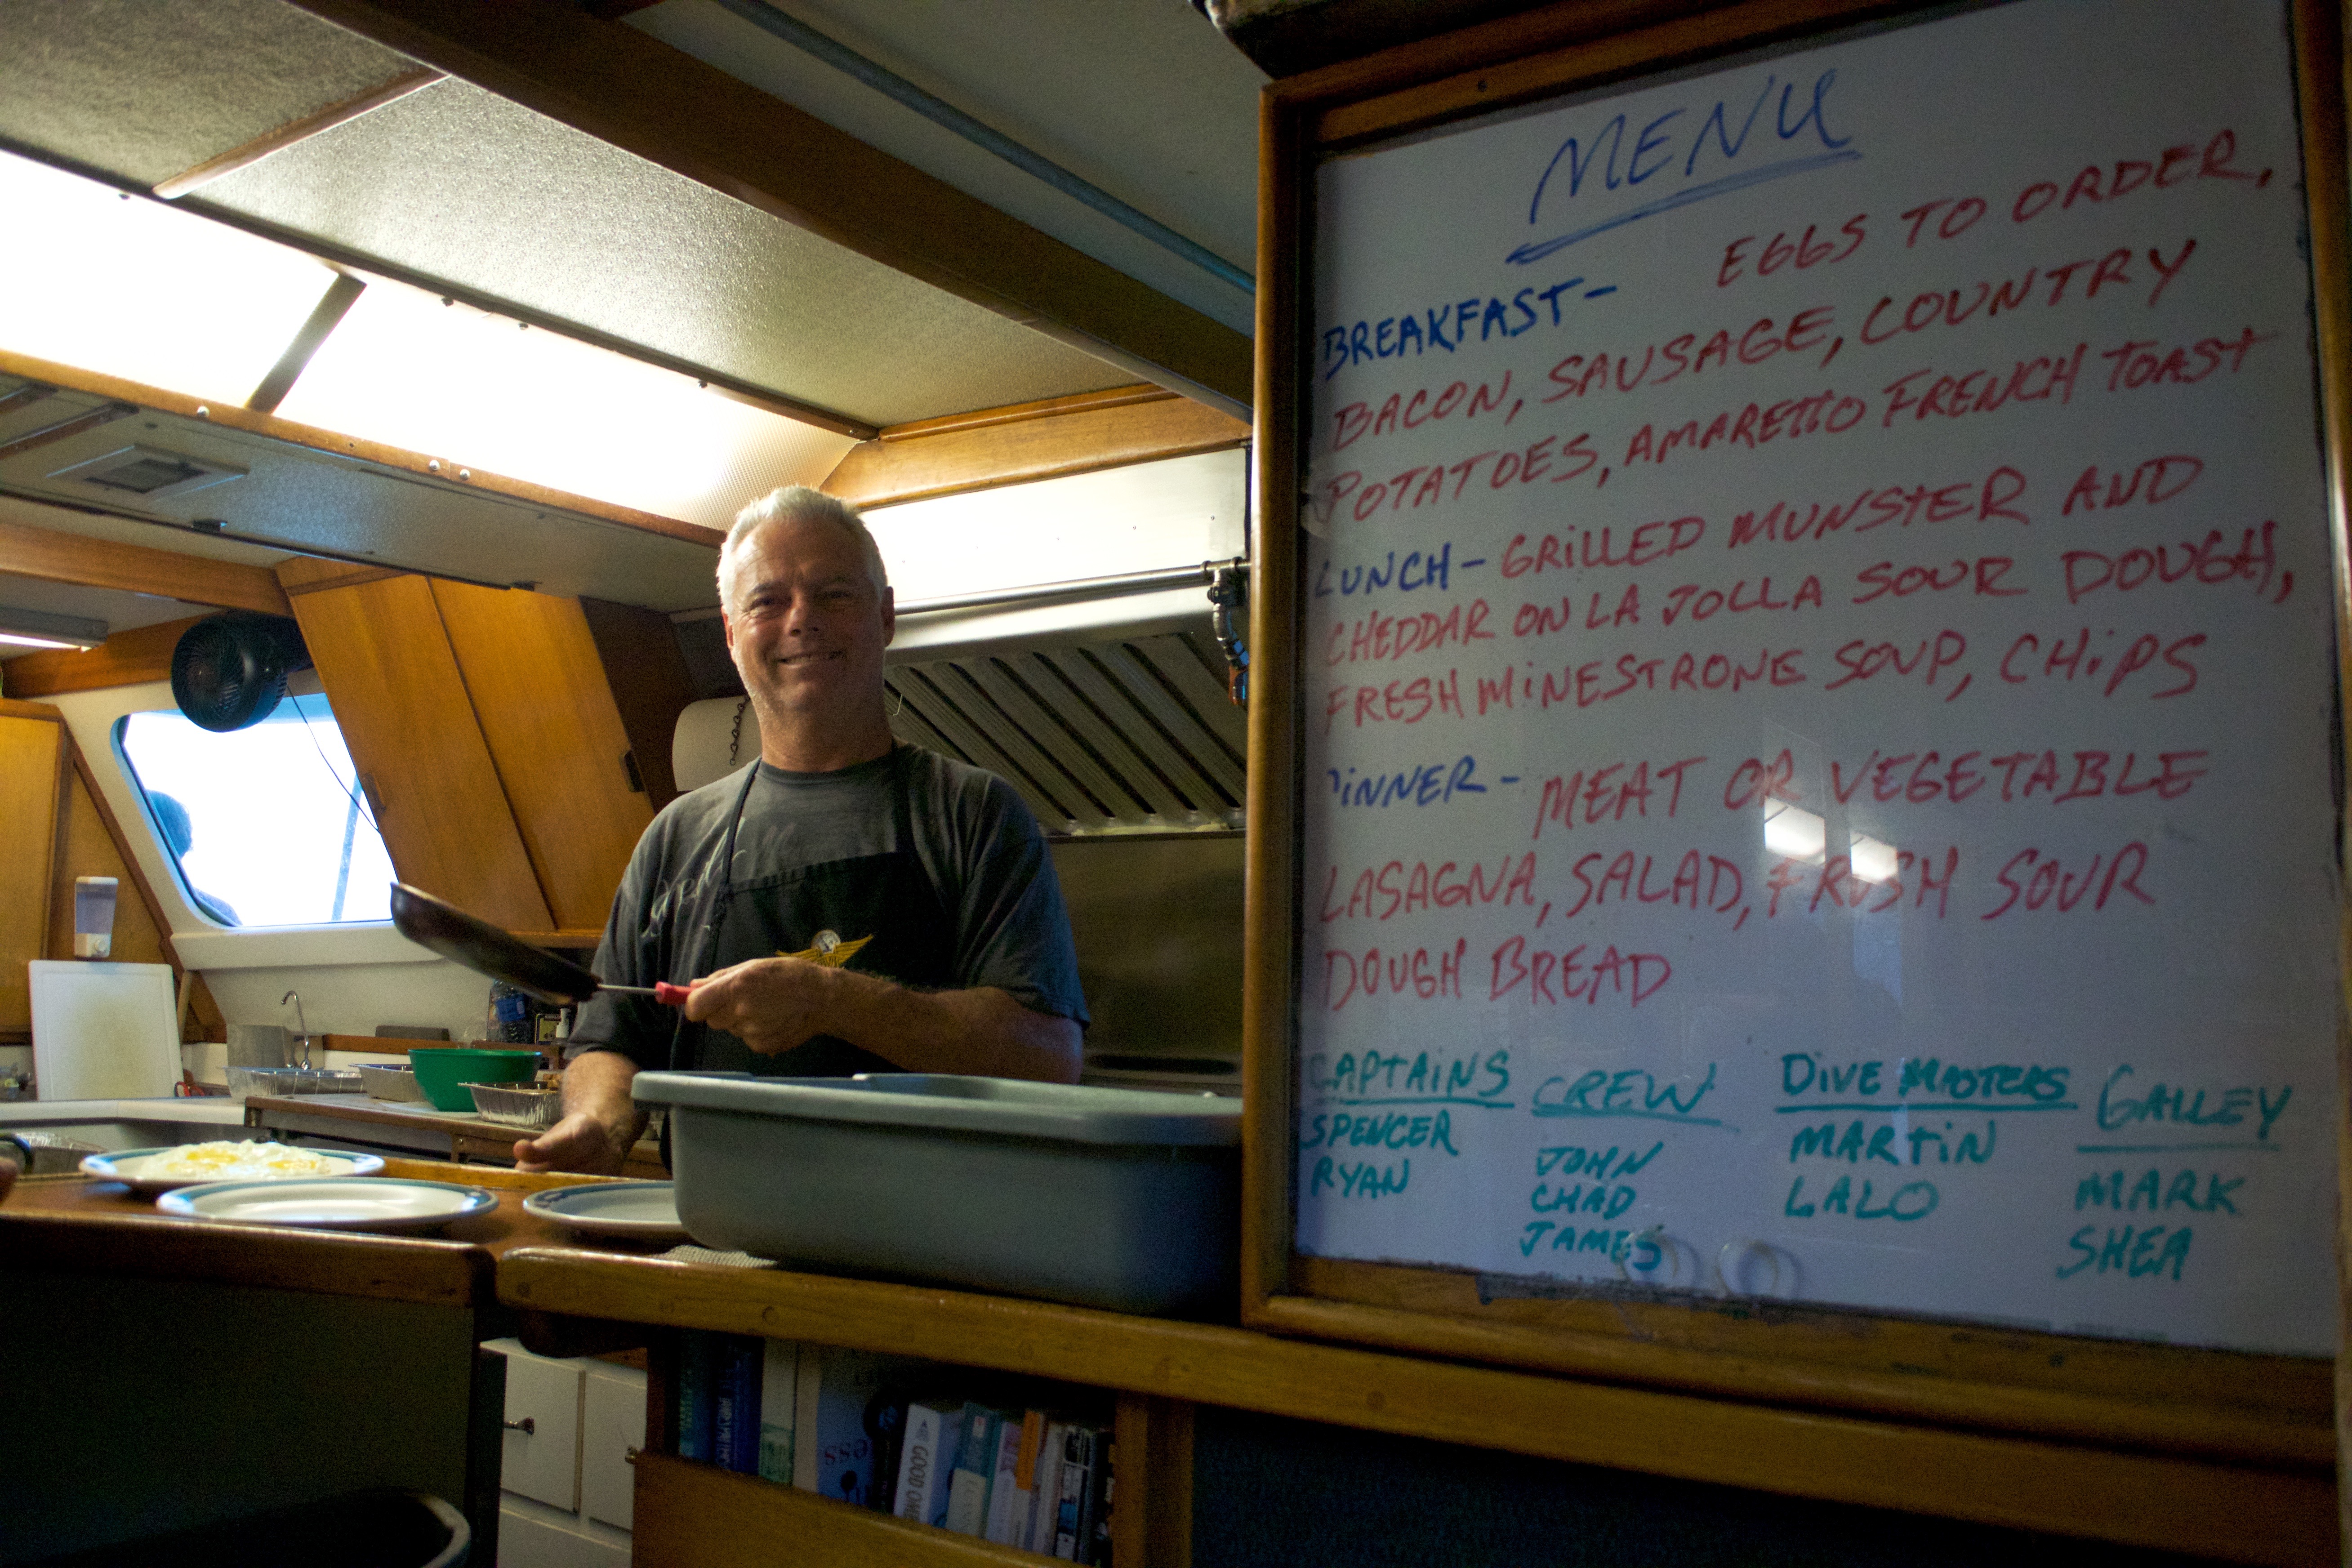 MENU
BREAKFAST- EGGS TO ORDER,
BACON, SAUSAGE, COUNTRY
POTATOES, AMARETTO FRENCH TOAST
LUNCH- GRILLED MUNSTER AND
CHEDDAR ON LA JOLLA SOUR DOUGH,
FRESH MINESTRONE SOUP, CHIPS
DINNER- MEAT OR VEGETABLE
LASAGNA, SALAD, FRESH SOUR
DOUGH BREAD
CAPTAINS
SPENCER
RYAN
CREW
JOHN
CHAD
JAMES
DIVE MASTERS
MARTIN
LALO
GALLEY
MARK
SHEA
GOOD
ess